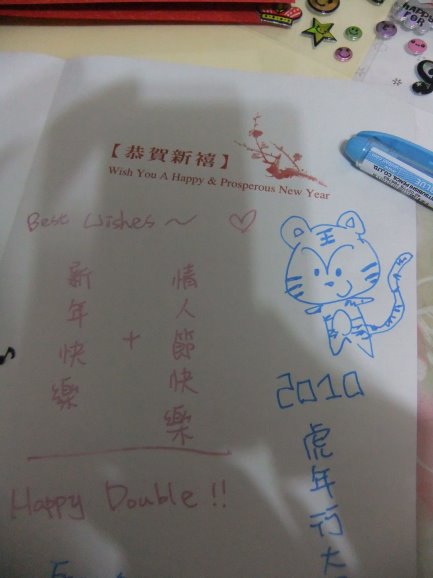 【恭賀新禧】
Wish You A Happy & Prosperous New Year
Best Wishes ~ ♡
新年快樂
+
情人節快樂
Happy Double!!
2010
虎年行大
HAPPY
FOR